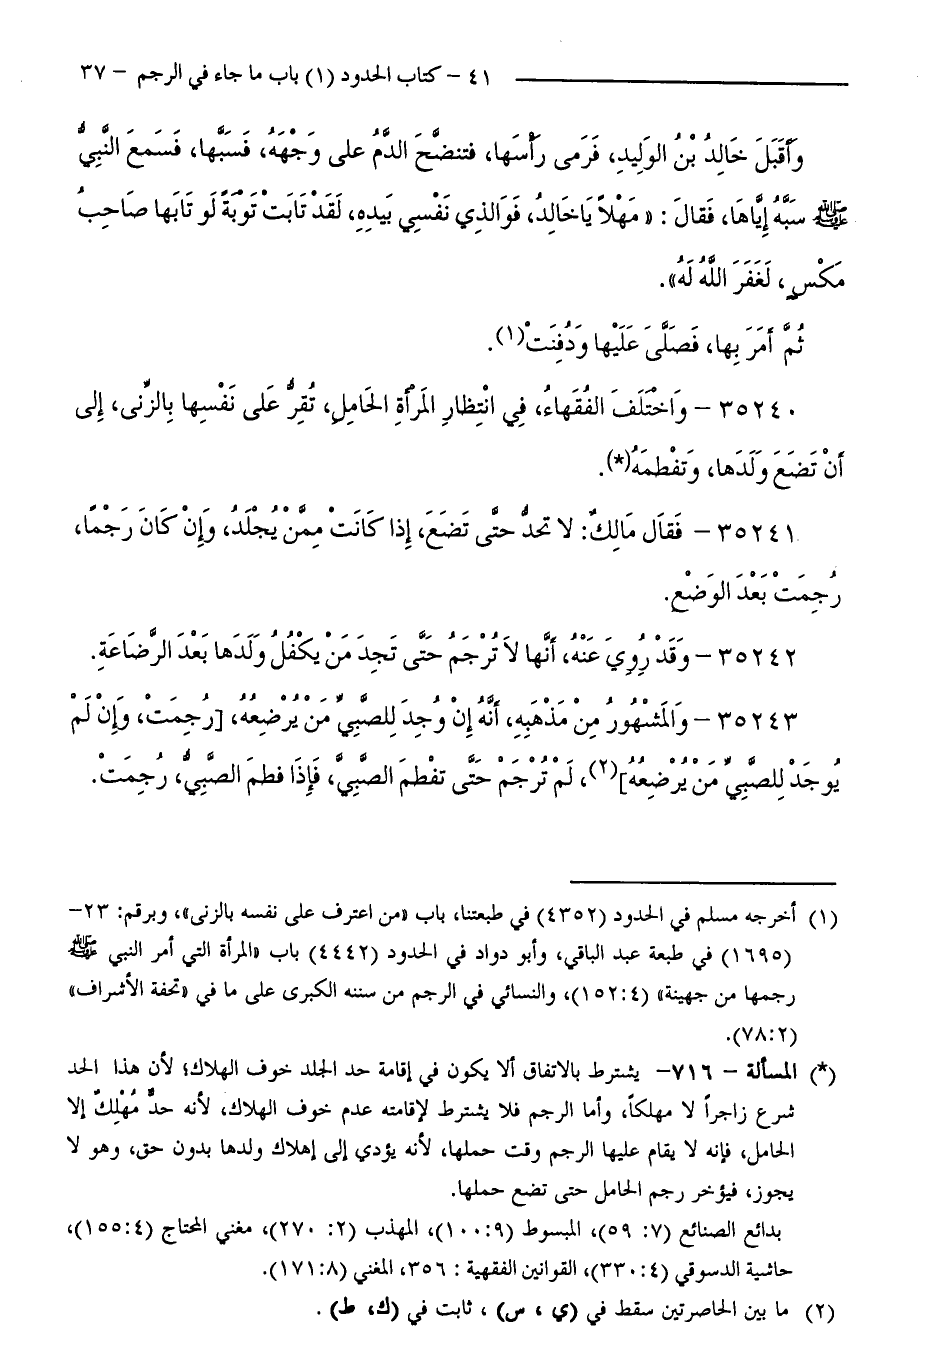 ٤١ – كتاب الحدود (١) باب ما جاء في الرجم – ٣٧
وَأَقبَلَ خَالِدُ بْنُ الوَلِيدِ، فَرَمى رَأْسَها، فتنضَّحَ الدَّمُ على وَجْهَهُ، فَسَبَّها، فَسَمعَ النَّبِيُّ
ﷺ سَبَّهُ إِيَّاهَا، فَقالَ : « مَهْلاً يَاخالِدُ، فَوَالذي نَفْسي بَيدِهِ، لَقَدْ تَابَتْ تَوبَةً لَو تَابها صَاحِبُ
مَكْسٍ، لَغَفَرَ اللَّهُ لَهُ».
ثُمَّ أَمَرَ بِها، فَصَلَّىَ عَلَيْها وَدُفِنَتْ(١).
٣٥٢٤٠ – وَاخْتَلَفَ الفُقَهاءُ، فِي انْتِظارِ المَرْأةِ الحَامِلِ، تُقِرُّ عَلى نَفْسِها بِالزِّنى، إِلى
أَنْ تَضَعَ وَلَدَها، وَتَفْطمَهُ(*).
٣٥٢٤١ – فَقاَل مَالِكٌ: لا تحدُّ حتَّى تَضَعَ، إِذا كَانَتْ ممَّنْ يُجْلَدُ، وَإِنْ كَانَ رَجْمًا،
رُجِمَتْ بَعْدَ الوَضْعِ.
٣٥٢٤٢ – وَقَدْ رِوُيَ عَنْهُ، أَنَّها لاَ تُرْجَمُ حَتَّى تَجِدَ مَنْ يكْفُلُ وَلَدَها بَعْدَ الرَّضَاعَةِ.
٣٥٢٤٣ – وَالمَشْهُورُ مِنْ مَذْهَبِهِ، أَنَّهُ إِنْ وُجِدَ للِصَّبِيِّ مَنْ يُرْضِعُهُ، [رُجِمَتْ، وَإِنْ لَمْ
يُوجَدْ لِلصَّبِيِّ مَنْ يُرْضِعُهُ](٢)، لَمْ تُرْجَمْ حَتَّى تفْطمَ الصَّبِيَّ، فَإِذَا فطمَ الصَّبِيُّ، رجُمَتْ.
(١) أخرجه مسلم في الحدود (٤٣٥٢) في طبعتنا، باب «من اعترف على نفسه بالزنى»، وبرقم: ٢٣–
(١٦٩٥) في طبعة عبد الباقي، وأبو دواد في الحدود (٤٤٤٢) باب «المرأة التي أمر النبي ﷺ
رجمها من جهينة» (١٥٢:٤)، والنسائي في الرجم من سننه الكبرى على ما في «تحفة الأشراف»
(٧٨:٢).
(*) المسألة – ٧١٦– يشترط بالاتفاق ألا يكون في إقامة حد الجلد خوف الهلاك؛ لأن هذا الحد
شرع زاجراً لا مهلكاً، وأما الرجم فلا يشترط لإقامته عدم خوف الهلاك، لأنه حدٌّ مُهْلِكٌ إلا
الحامل، فإنه لا يقام عليها الرجم وقت حملها، لأنه يؤدي إلى إهلاك ولدها بدون حق، وهو لا
يجوز، فيؤخر رجم الحامل حتى تضع حملها.
بدائع الصنائع (٧: ٥٩)، المبسوط (١٠٠:٩)، المهذب (٢: ٢٧٠)، مغني المحتاج (١٥٥:٤)،
حاشية الدسوقي (٣٣٠:٤)، القوانين الفقهية : ٣٥٦، المغني (١٧١:٨).
(٢) ما بين الحاصرتين سقط في (ي ، س) ، ثابت في (ك، ط) .